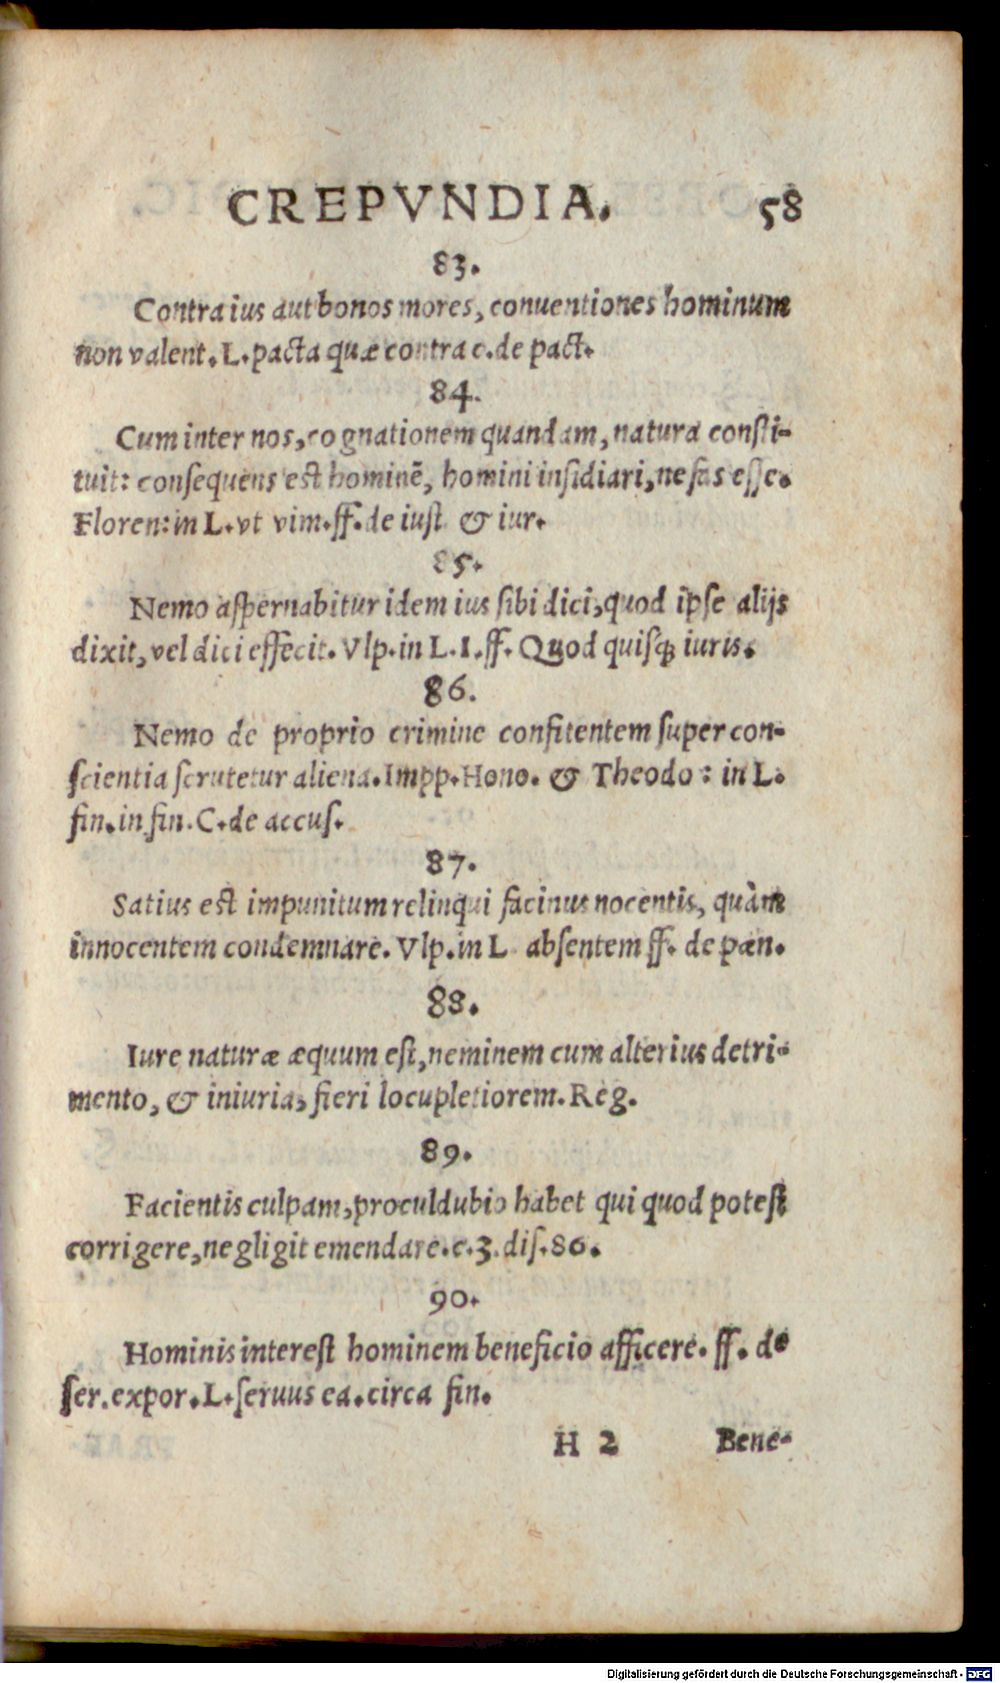 CREPVNDIA. 58
83.
Contra ius aut bonos mores, conuentiones hominum
non valent. L. pacta quæ contra c. de pact.
84.
Cum inter nos, cognationem quandam, natura consti-
tuit: consequens est hominē, homini insidiari, nefas esse.
Floren: in L. vt vim. ff. de iust & iur.
85.
Nemo aspernabitur idem ius sibi dici, quod ipse alijs
dixit, vel dici effecit. Vlp. in L. I. ff. Quod quisq; iuris.
86.
Nemo de proprio crimine confitentem super con-
scientia scrutetur aliena. Impp. Hono. & Theodo: in L.
fin. in fin. C. de accus.
87.
Satius est impunitum relinqui facinus nocentis, quàm
innocentem condemnare. Vlp. in L absentem ff. de pœn.
88.
Iure naturæ æquum est, neminem cum alterius detri-
mento, & iniuria, fieri locupletiorem. Reg.
89.
Facientis culpam, proculdubio habet qui quod potest
corrigere, negligit emendare. c. 3. dis. 86.
90.
Hominis interest hominem beneficio afficere. ff. de
ser. expor. L. seruus ea. circa fin.
H 2 Bene-
Digitalisierung gefördert durch die Deutsche Forschungsgemeinschaft - DFG